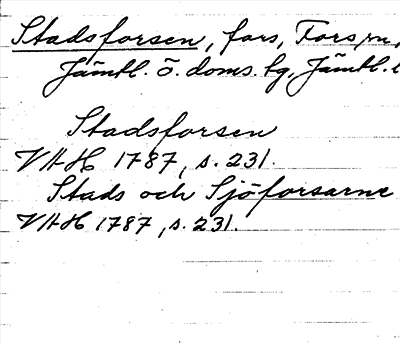 Stadsforsen, fors, Fors sn,
Jämtl. ö. doms. tg, Jämtl. l
Stadsforsen
VAH 1787, s. 231.
Stads och Sjöforsarne
VAH 1787, s. 231.